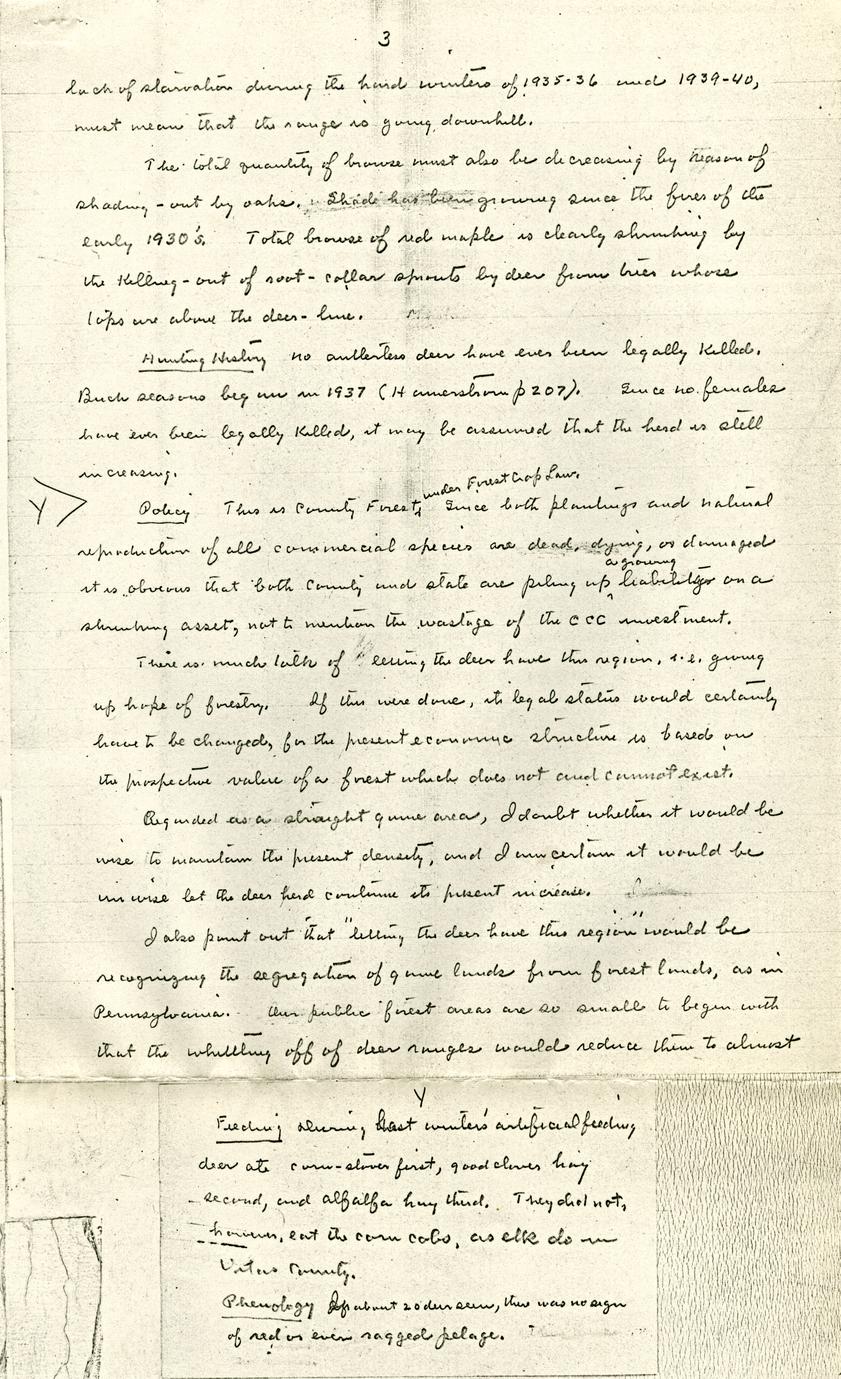 3
lack of starvation during the hard winters of 1935-36 and 1939-40,
must mean that the range is going downhill.
The total quantity of browse must also be decreasing by reason of
shading-out by oaks. Shade has been growing since the fires of the
early 1930's. Total browse of red maple is clearly shrinking by
the killing-out of root-collar sprouts by deer from trees whose
tops are above the deer-line.
Hunting History No antlerless deer have ever been legally killed.
Buck seasons began in 1937 (Hamerstrom p 207). Since no females
have ever been legally killed, it may be assumed that the herd is still
increasing.
under Forest Crop Law.
Y > Policy This is County Forest, Since both plantings and natural
reproduction of all commercial species are dead, dying, or damaged
a growing
it is obvious that both county and state are piling up liability on a
shrinking asset, not to mention the wastage of the CCC investment.
There is much talk of letting the deer have this region, i.e. giving
up hope of forestry. If this were done, its legal status would certainly
have to be changed, for the present economic structure is based on
the prospective value of a forest which does not and cannot exist.
Regarded as a straight game area, I doubt whether it would be
wise to maintain the present density, and I am certain it would be
unwise let the deer herd continue its present increase.
I also point out that "letting the deer have this region" would be
recognizing the segregation of game lands from forest lands, as in
Pennsylvania. Our public forest areas are so small to begin with
that the whittling off of deer ranges would reduce them to almost
Y
Feeding During last winter's artificial feeding
deer ate corn-stover first, good clover hay
second, and alfalfa hay third. They did not,
however, eat the corn cobs, as elk do in
Vilas County.
Phenology Of about 20 deer seen, there was no sign
of red or even ragged pelage.